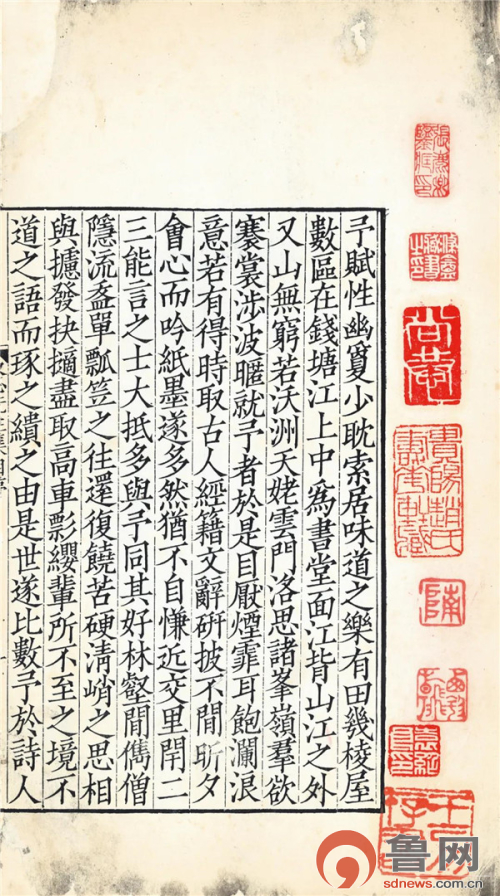 予賦性幽夐少耽索居味道之樂有田幾棱屋
數區在錢塘江上中為書堂面江背山江之外
又山無窮若沃洲天姥雲門洛思諸峯嶺羣欲
褰裳涉波暱就予者於是目厭煙霏耳飽瀾浪
意若有得時取古人經籍文辭硏披不閒昕夕
會心而吟紙墨遂多然猶不自慊近交里閈二
三能言之士大抵多與予同其好林壑閒儁僧
隱流盋單瓢笠之往還復饒苦硬清峭之思相
與攄發抉擿盡取高車髟纓輩所不至之境不
道之語而琢之繢之由是世遂比數予於詩人
鲁网
sdnews.com.cn